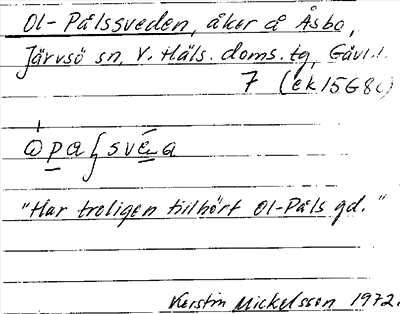 Ol-Pålssveden, åker å Åsbo,
Järvsö sn, V. Häls. doms. tg, Gävl. l.
7 (ek 15G8c)
"Har troligen tillhört Ol-Påls gd."
Kerstin Mickelsson 1972.